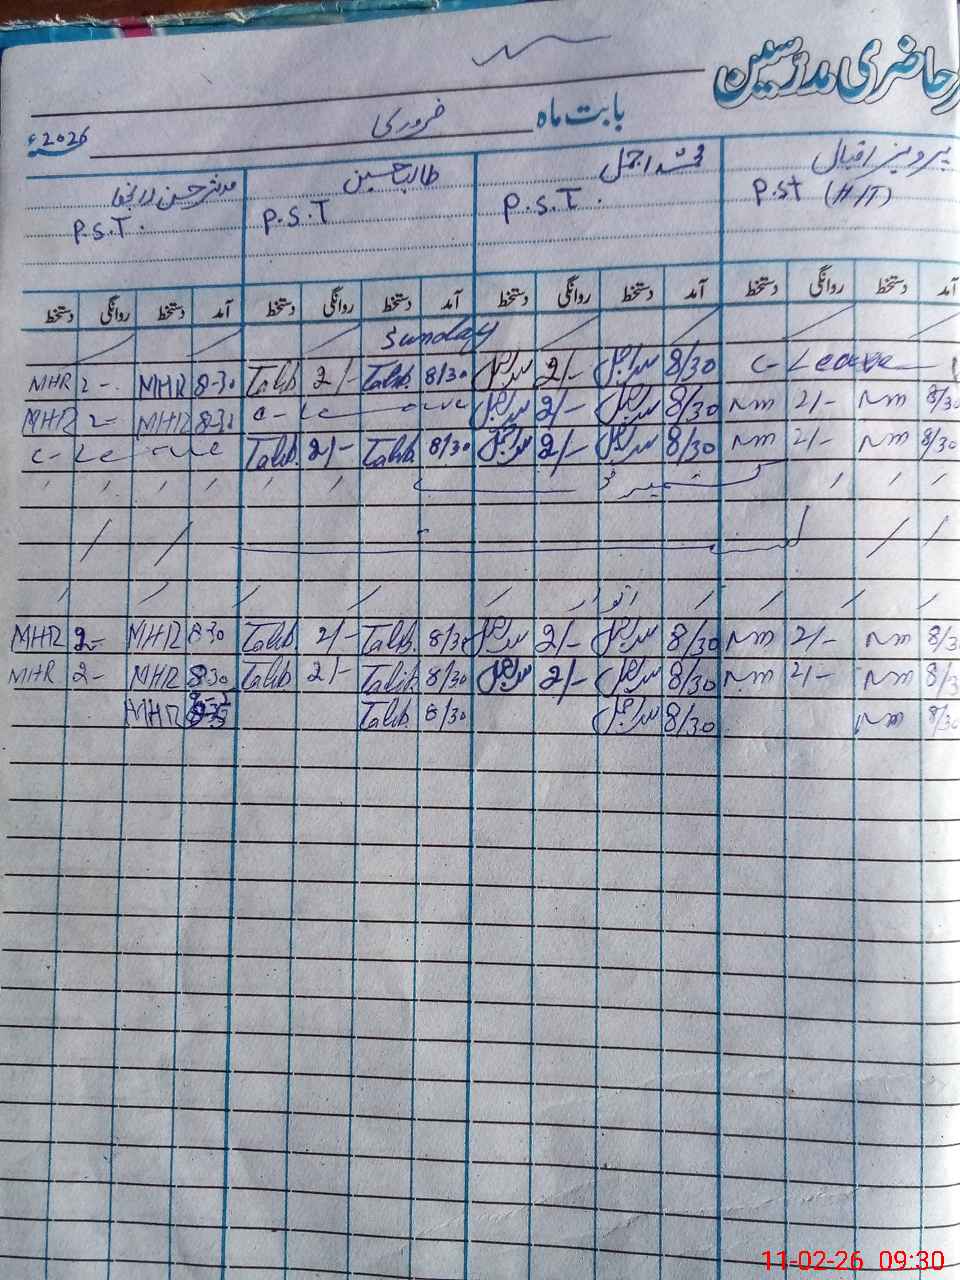 حاضری مدرسین
بابت ماہ فروری 2026ء
پرویز اقبال محمد اجمل طالب حسین مدثر حسن رانجھا
P.St (H/T) P.S.T. P.S.T P.S.T.
آمد دستخط روانگی دستخط آمد دستخط روانگی دستخط آمد دستخط روانگی دستخط آمد دستخط روانگی دستخط
Sunday
MHR 2- MHR 8-30 Talib 2/- Talib 8/30 2/- 8/30 C-Leave
MHR 2- MHR 8-30 C-Leave 2/- 8/30 nm 2/- nm 8/30
C-Leave Talib 2/- Talib 8/30 2/- 8/30 nm 2/- nm 8/30
کشمیر ڈے
اتوار
MHR 2- MHR 8-30 Talib 2/- Talib 8/30 2/- 8/30 nm 2/- nm 8/3
MHR 2- MHR 8-30 Talib 2/- Talib 8/30 2/- 8/30 nm 2/- nm 8/3
MHR Talib 8/30 8/30 nm 8/3
11-02-26 09:30